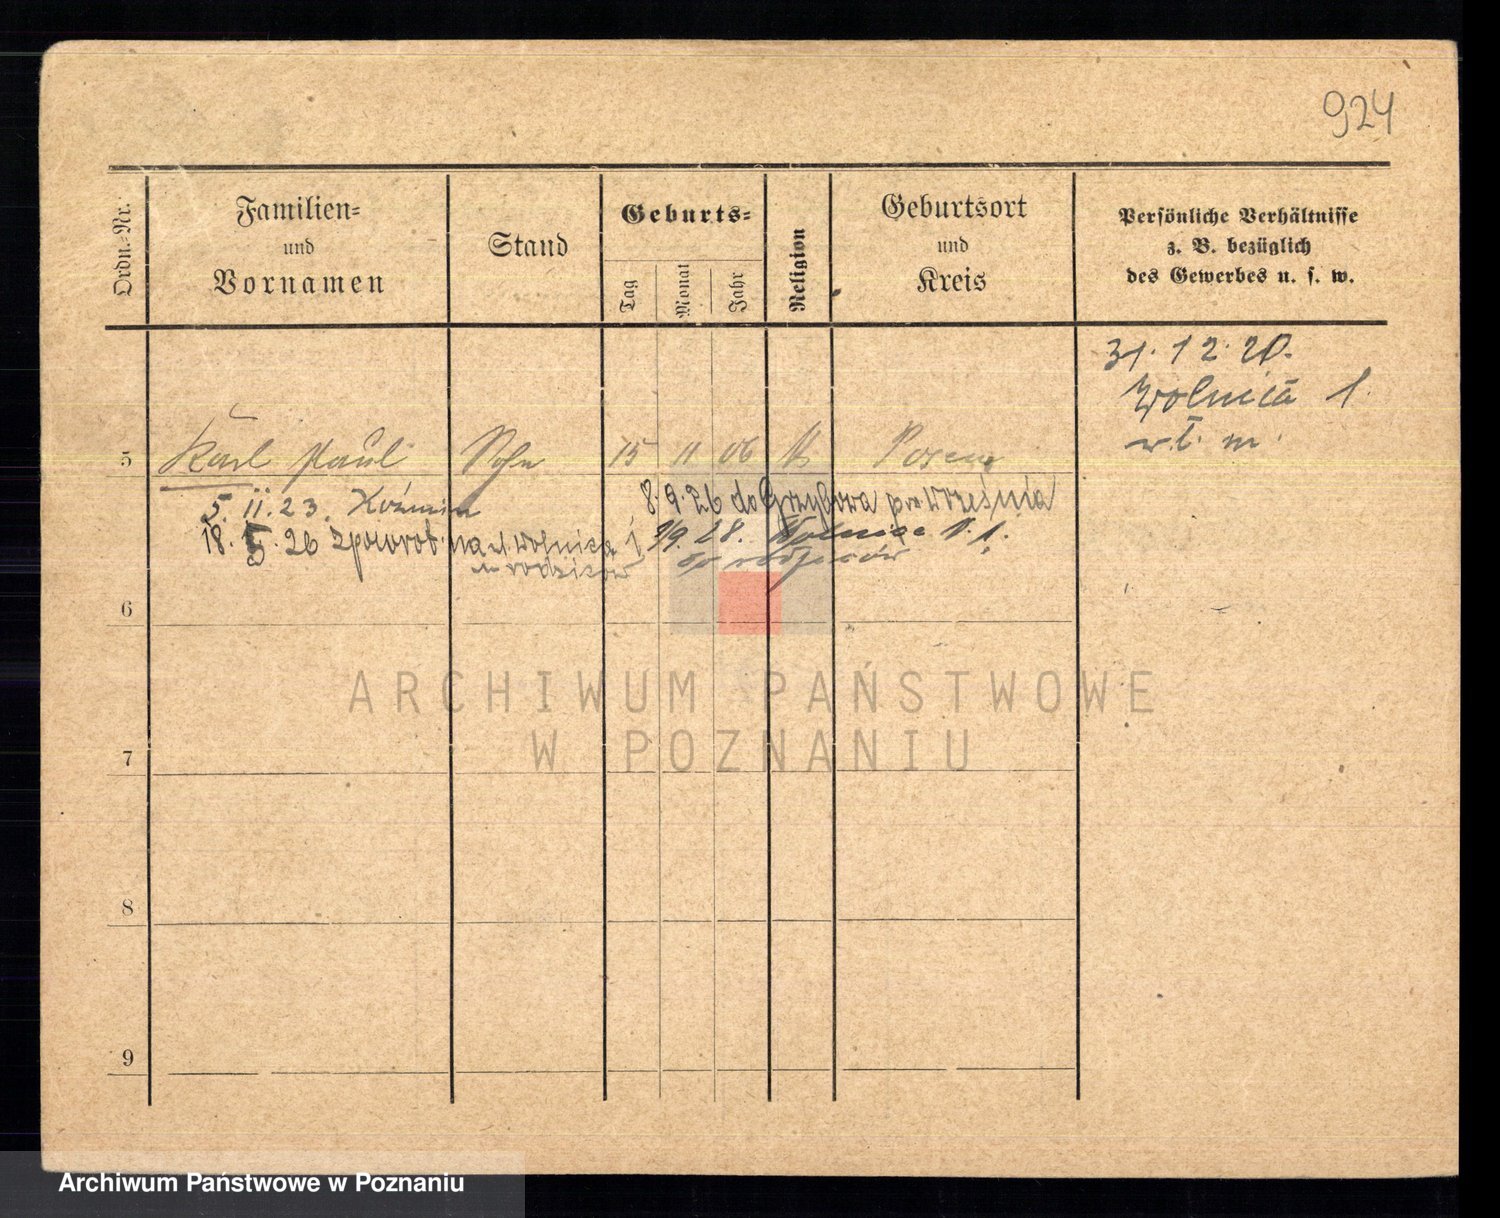 924
Ordn.-Nr.
Familien-
und
Vornamen
Stand
Geburts-
Tag
Monat
Jahr
Religion
Geburtsort
und
Kreis
Persönliche Verhältnisse
z. B. bezüglich
des Gewerbes u. s. w.
31. 12. 20.
Wolnica 1.
5 Karl Paul Sohn 15 11 06 Posen
5. 11. 23. Koźmin
8.9.26 do Grzybowa pow Września
18. 5. 26 z powrot. na Wolnica 1
u rodziców
9. 28. Wolnica N. 1.
rodziców
6
7
8
9
ARCHIWUM PAŃSTWOWE
W POZNANIU
Archiwum Państwowe w Poznaniu